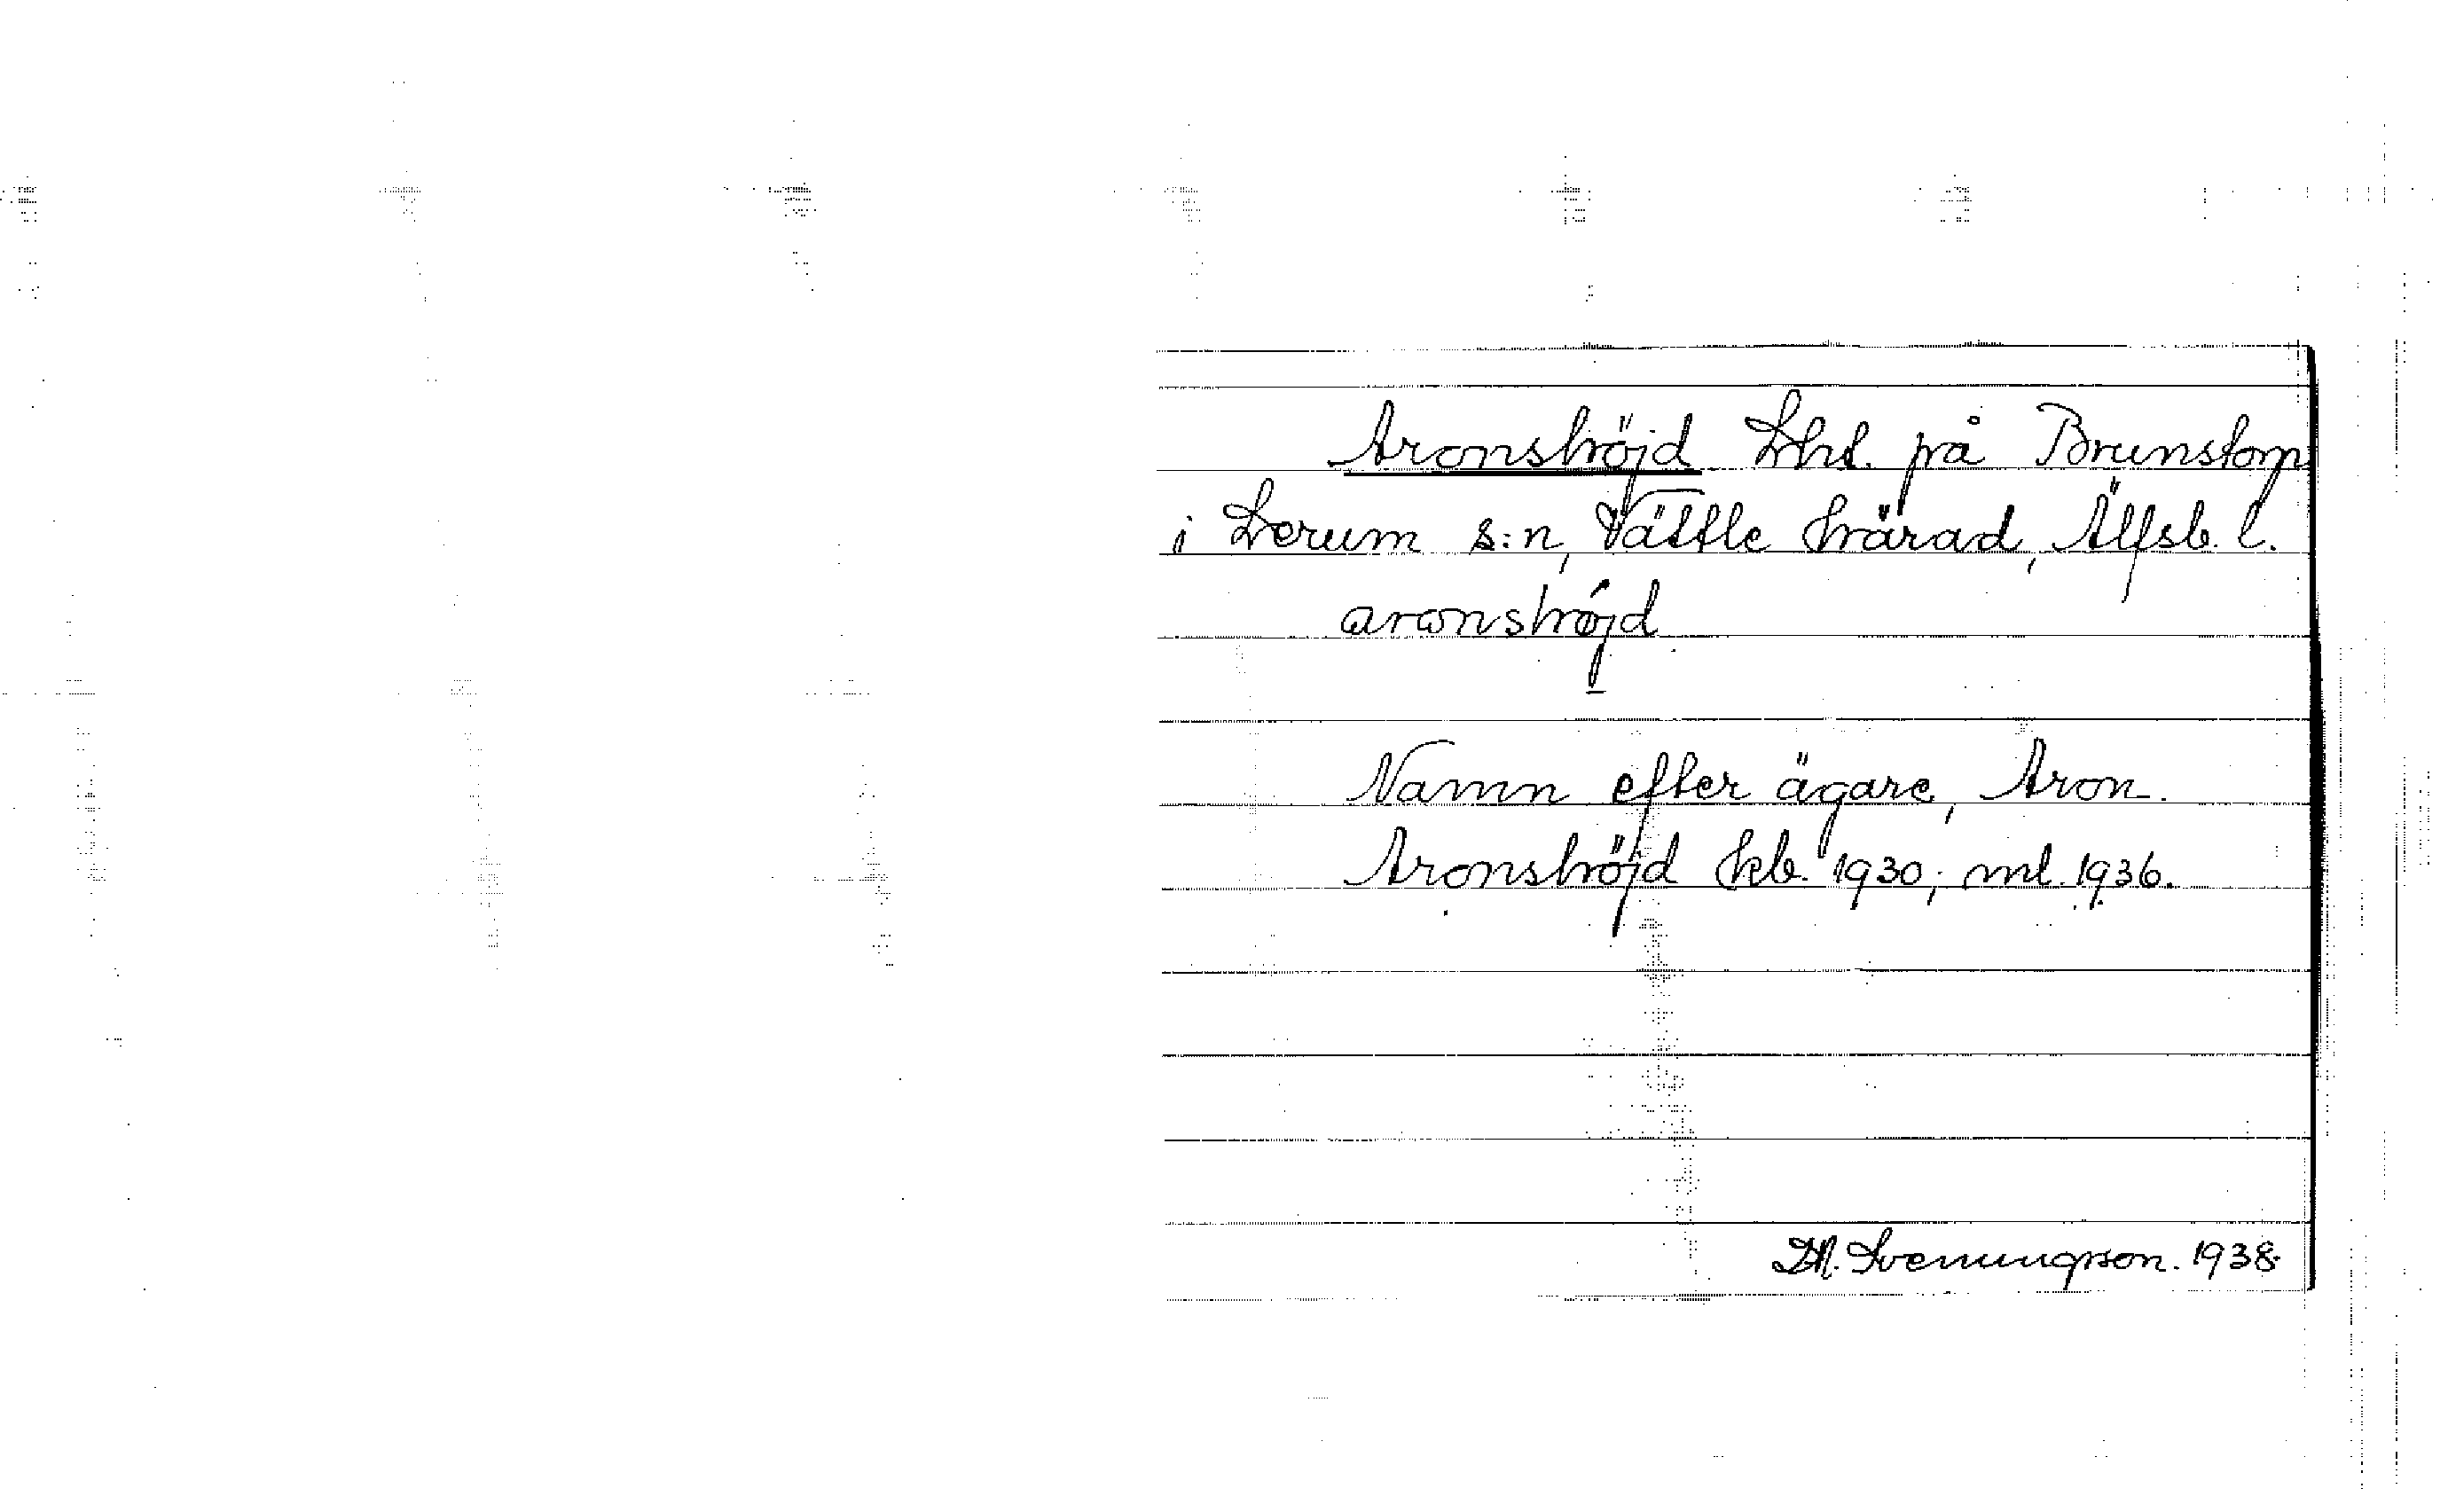 Aronshöjd Lht. på Brunstorp
i Lerum s:n, Vättle härad, Älfsb. l.
aronshøjd
Namn efter ägare, Aron.
Aronshöjd kb. 1930; ml. 1936.
Svenungson. 1938.